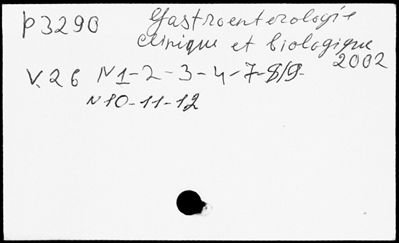 p3290 Gastroenterologie
clinique et biologique
2002
V. 26 N1-2-3-4-7-8/9-
N10-11-12